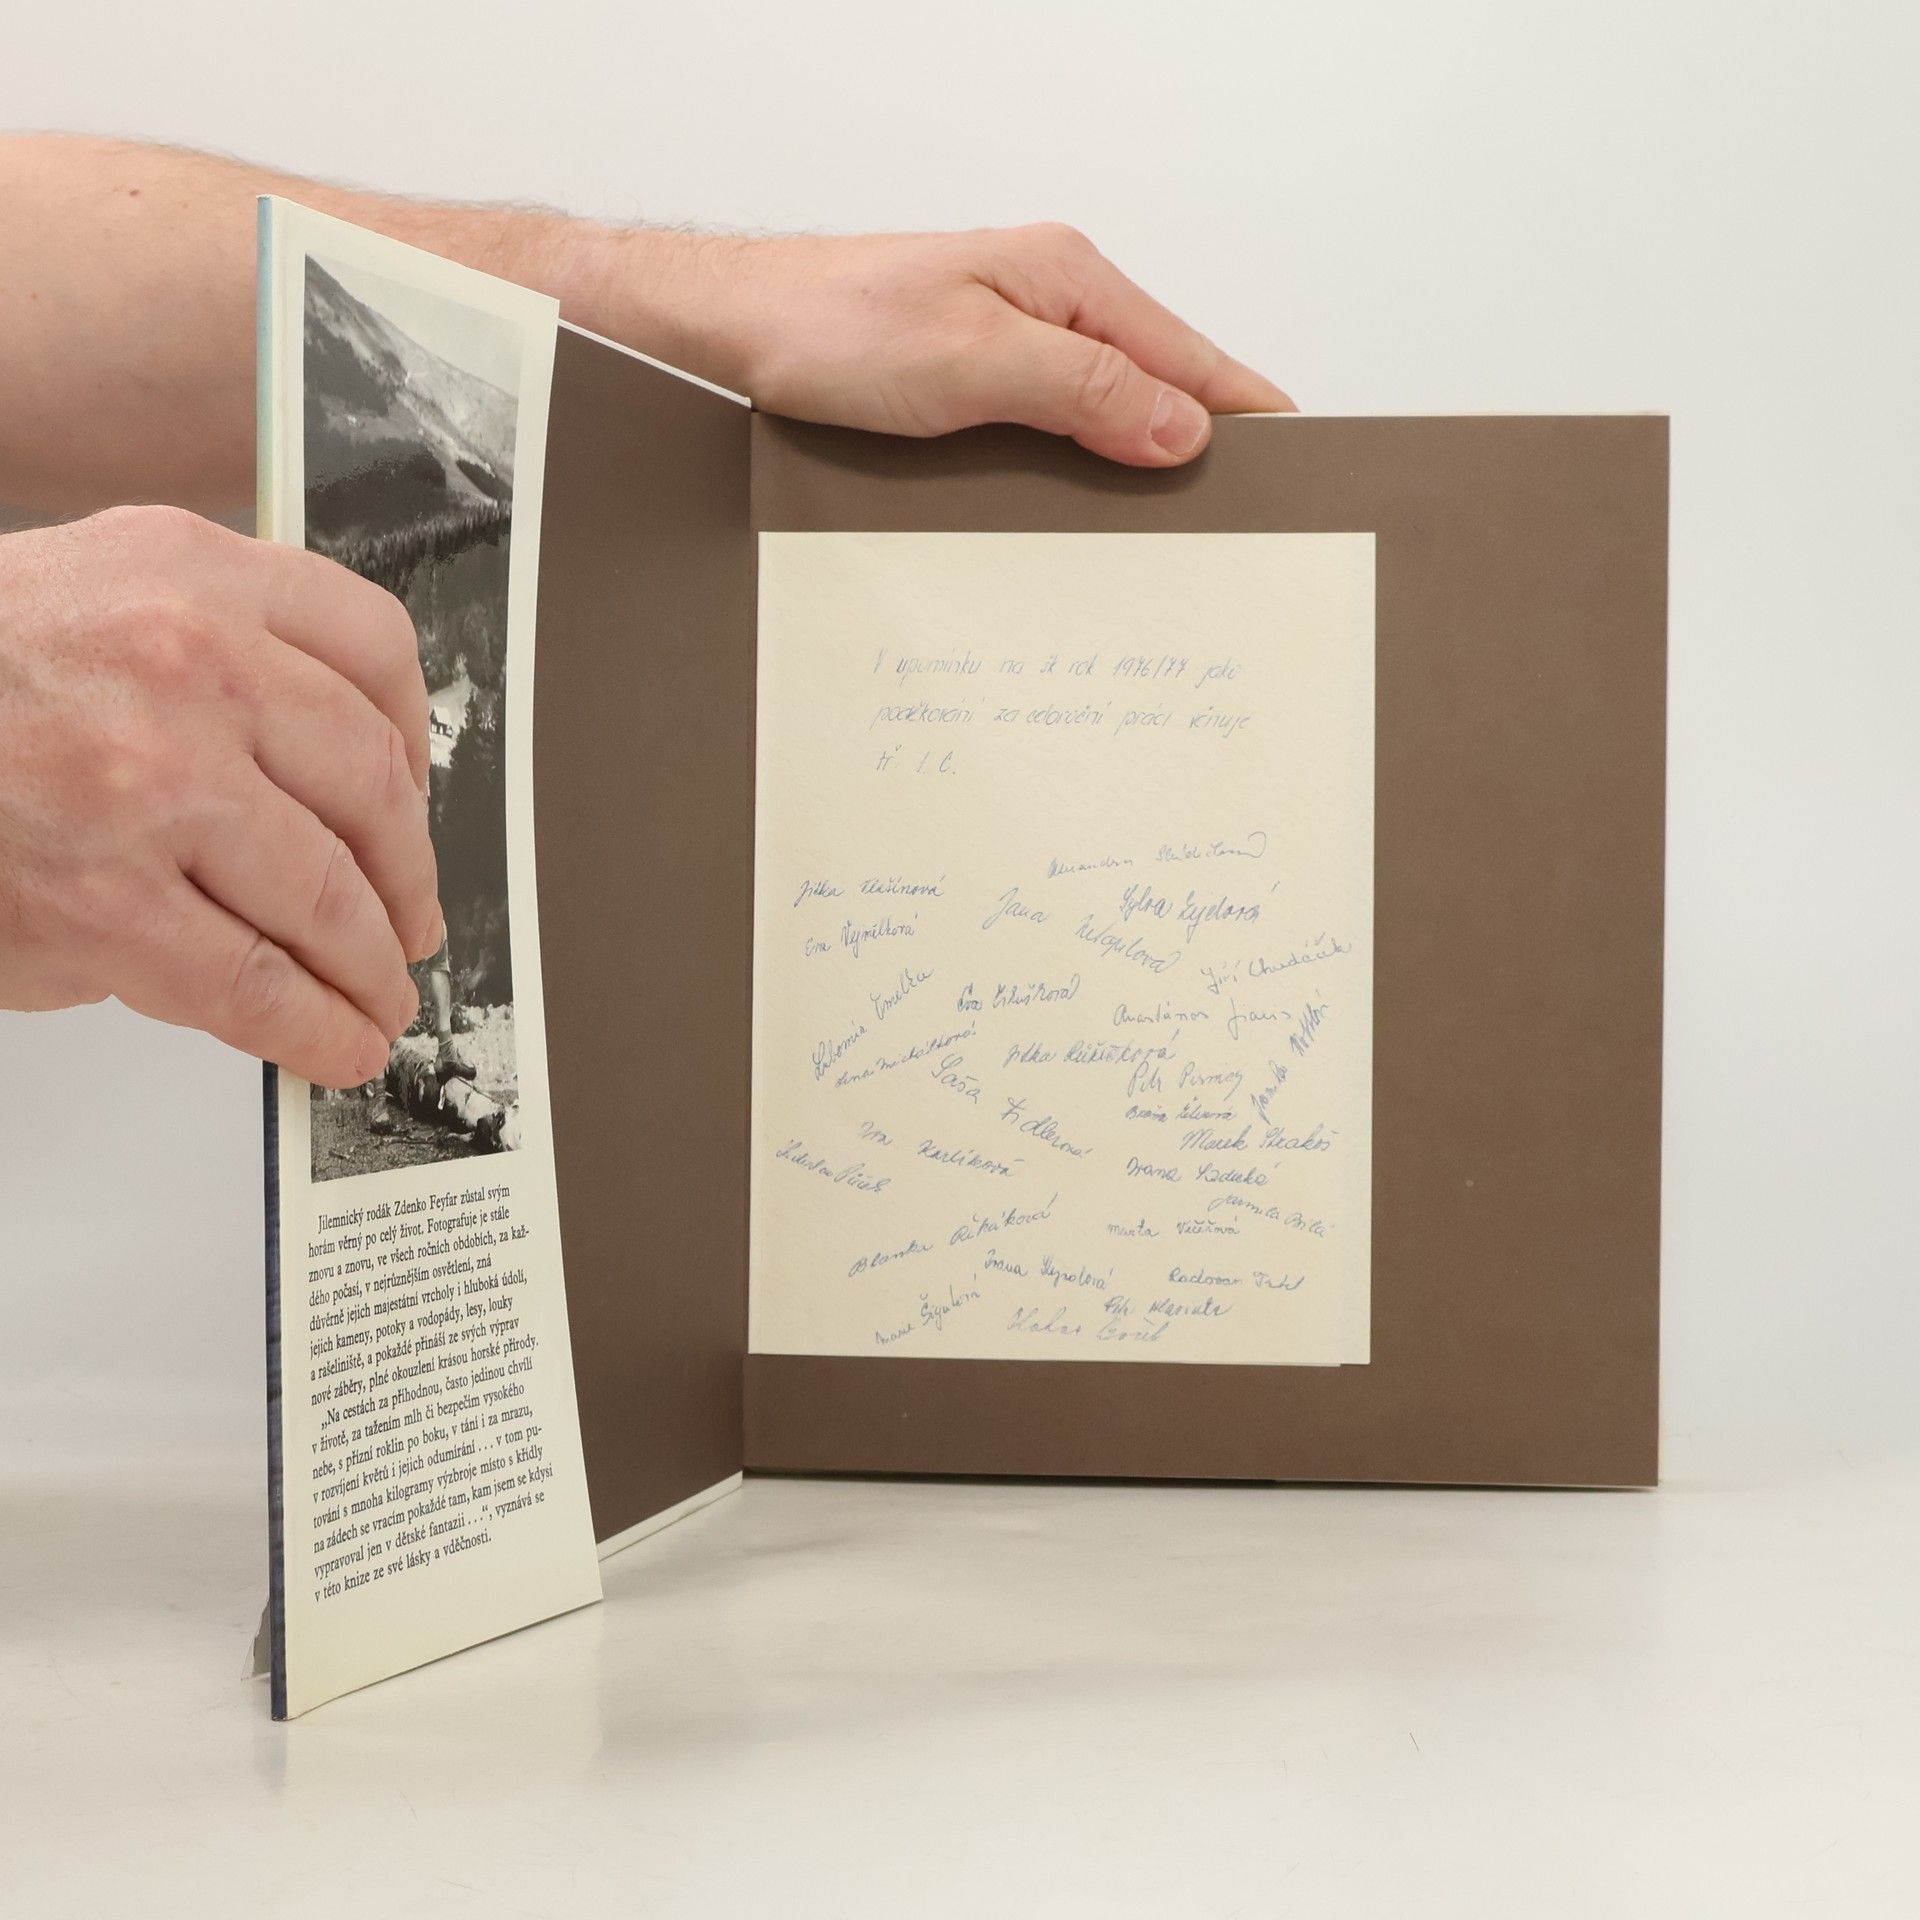 Jilemnický rodák Zdenko Feyfar zůstal svým
horám věrný po celý život. Fotografuje je stále
znovu a znovu, ve všech ročních obdobích, za kaž-
dého počasí, v nejrůznějším osvětlení, zná
důvěrně jejich majestátní vrcholy i hluboká údolí,
jejich kameny, potoky a vodopády, lesy, louky
a rašeliniště, a pokaždé přináší ze svých výprav
nové záběry, plné okouzlení krásou horské přírody.
„Na cestách za příhodnou, často jedinou chvílí
v životě, za tažením mlh či bezpečím vysokého
nebe, s přízní roklin po boku, v tání i za mrazu,
v rozvíjení květů i jejich odumírání . . . v tom pu-
tování s mnoha kilogramy výzbroje místo s křídly
na zádech se vracím pokaždé tam, kam jsem se kdysi
vypravoval jen v dětské fantazii . . .“, vyznává se
v této knize ze své lásky a vděčnosti.
V upomínku na šk rok 1976/77 jako
poděkování za celoroční práci věnuje
tř. I. C.
Jitka
Jana
Sylva
Eva Vymělková
Jiří Chudáček
Eva
Lubomír
Jitka Růžičková
Saša Fidlerová
Petr
Marek Strakoš
Iva Karlíková
Ivana
Jarmila Bílá
Blanka Řiháková
Marta
Ivana
Radovan
Marie Šigutová
Petr